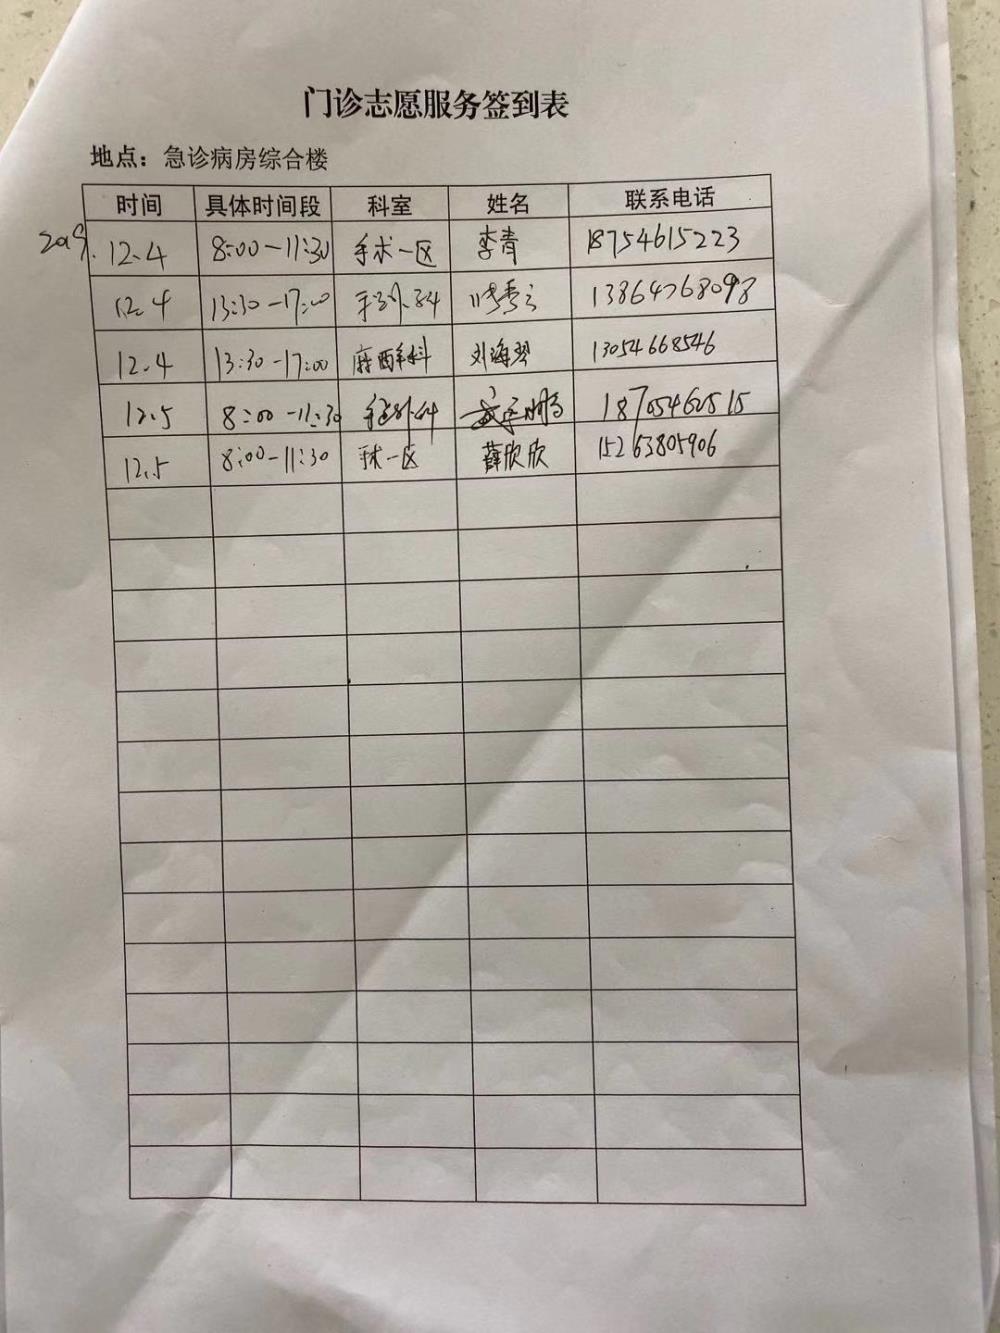 门诊志愿服务签到表
地点：急诊病房综合楼
时间 具体时间段 科室 姓名 联系电话
2019. 12.4 8:00-11:30 手术一区 李青 18754615223
12.4 13:30-17:00 手外科 秀云 13864768098
12.4 13:30-17:00 麻醉科 刘海琴 13054668546
12.5 8:00-11:30 手足外科 18705462515
12.5 8:00-11:30 手术一区 薛欣欣 15263805906